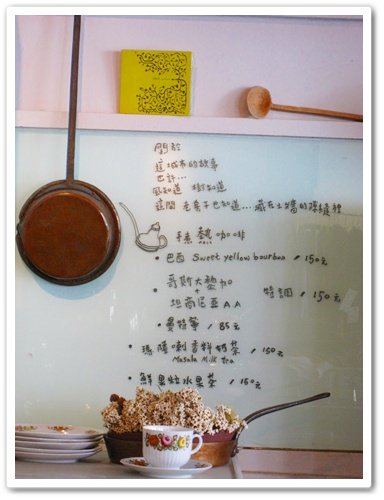 關於
這城市的故事
也許...
風知道 樹知道
這間 老房子也知道... 藏在土牆的隙縫裡
手煮 熱 咖啡
• 巴西 Sweet yellow bourbon / 150元
• 哥斯大黎加
+
坦尚尼亞AA 特調 / 150元
• 曼特寧 / 85元
• 瑪薩喇香料奶茶 / 150元
Masala Milk tea
• 鮮果粒水果茶 / 150元